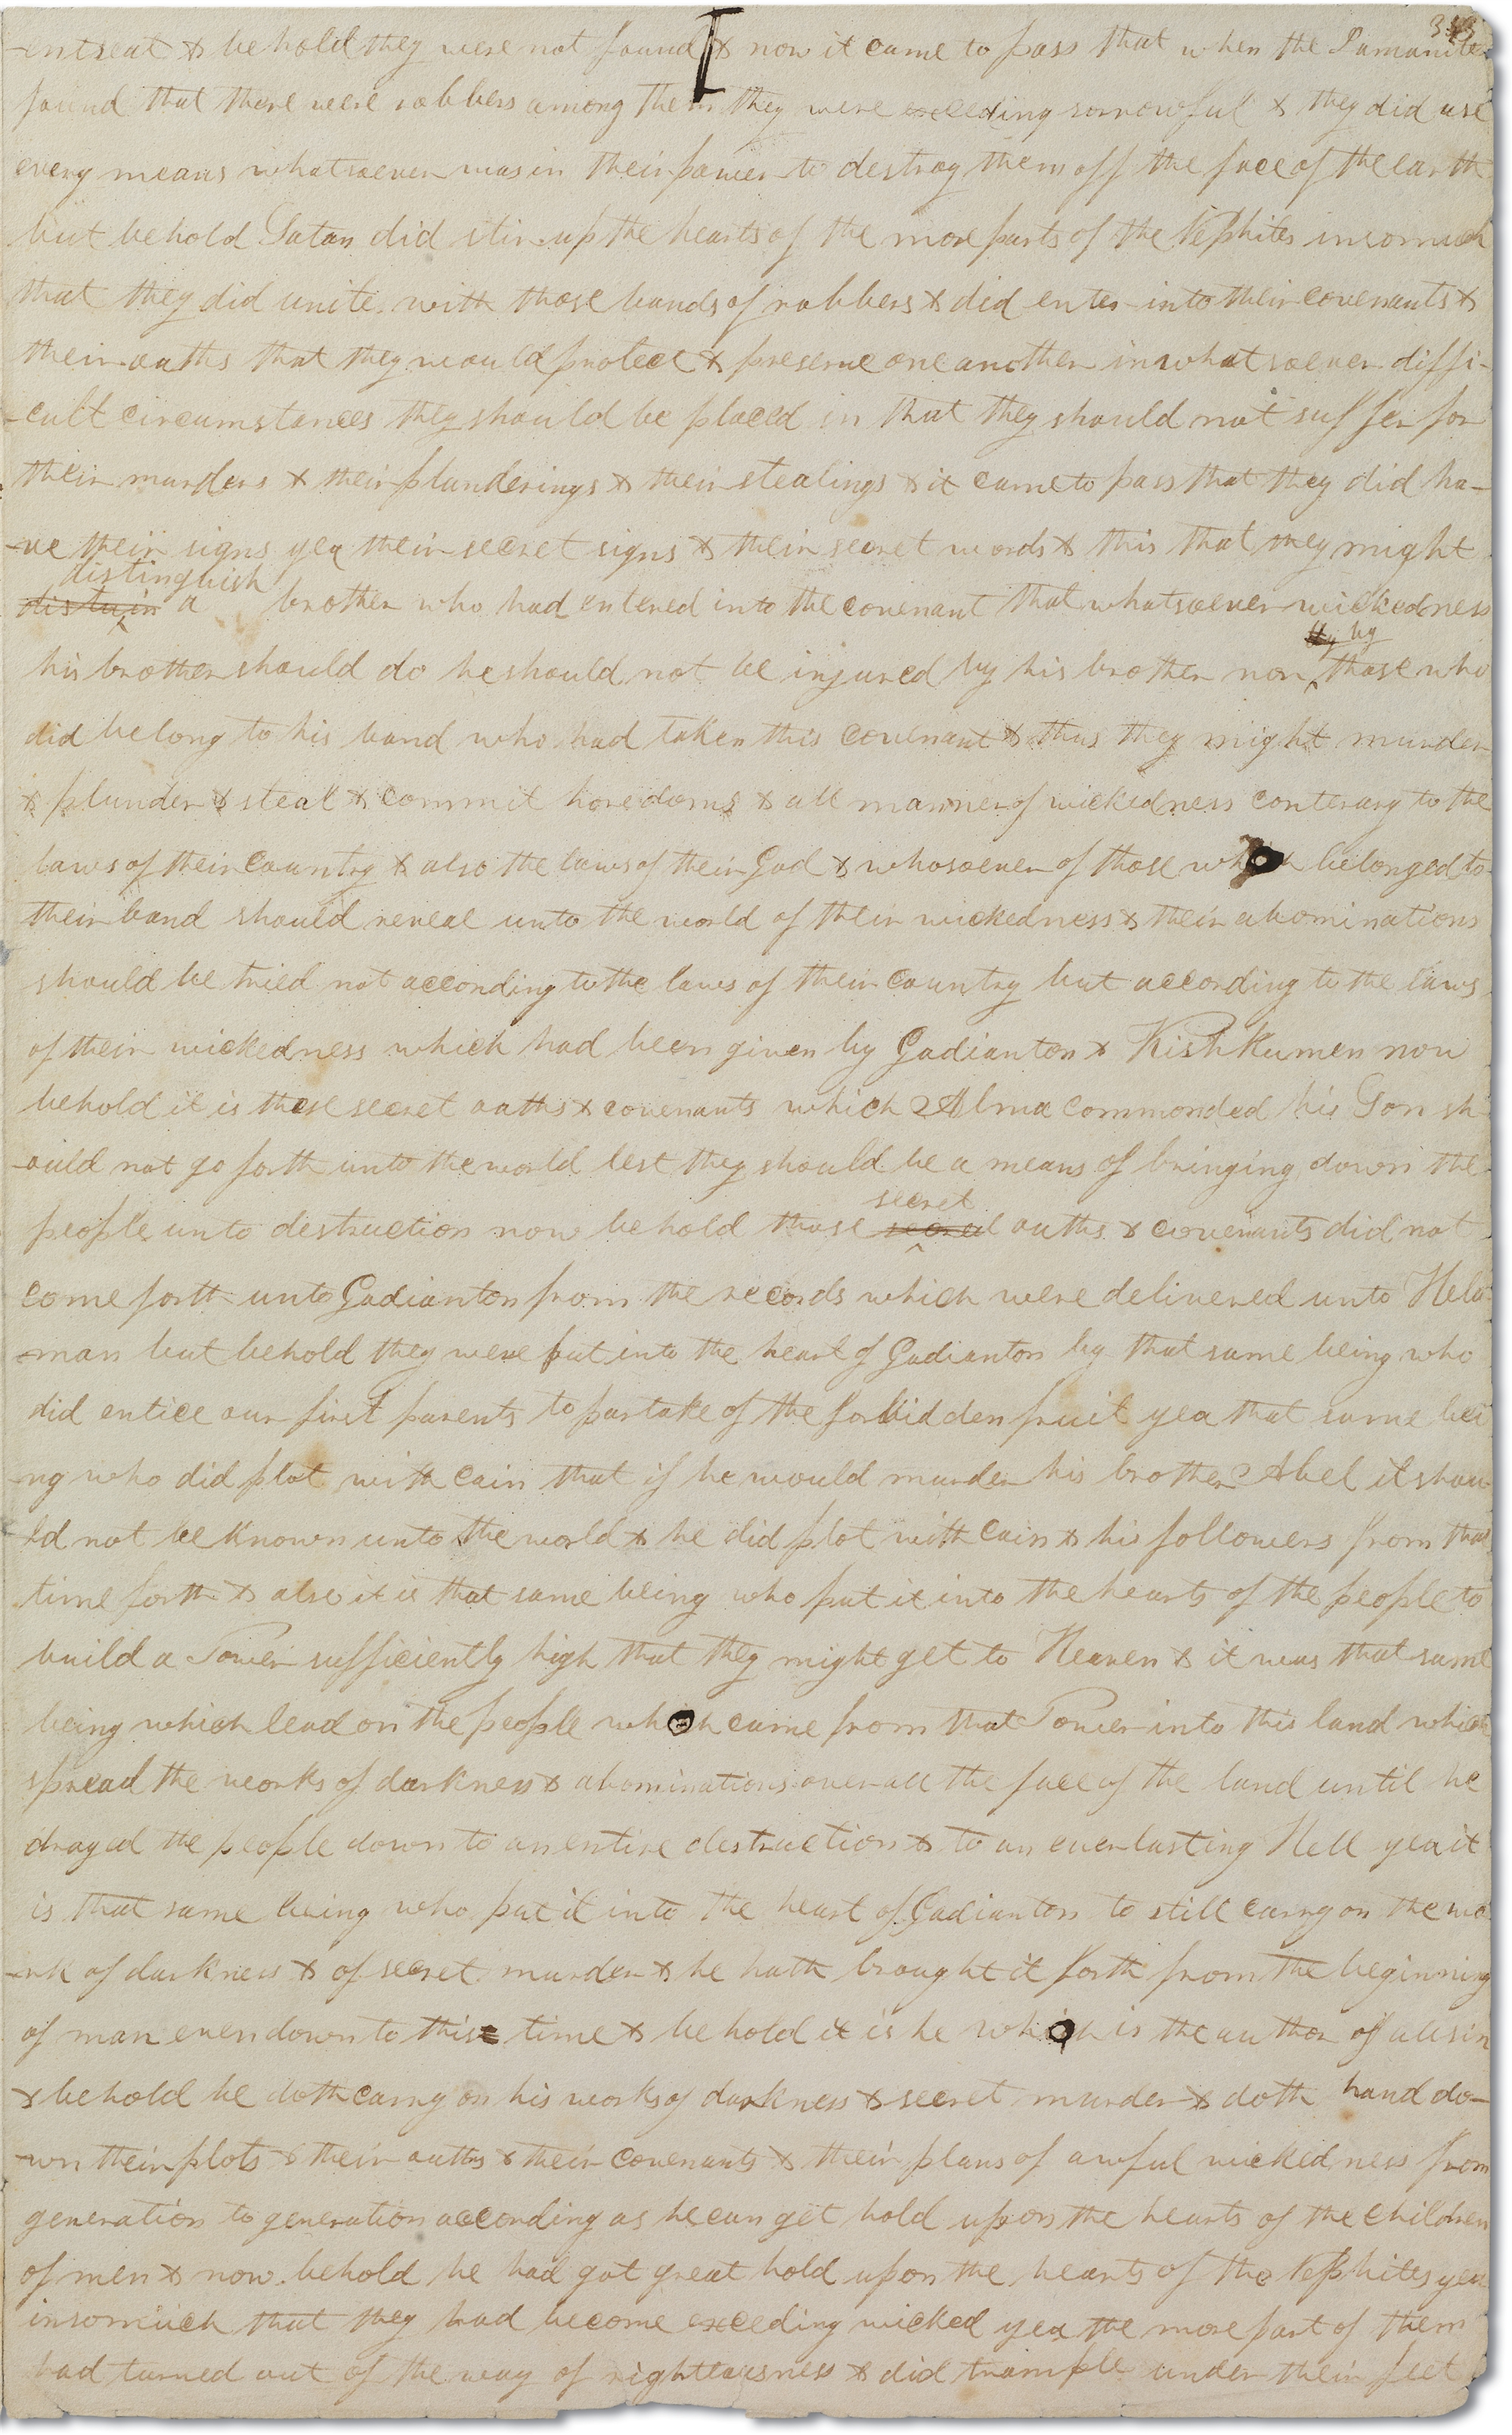 343
-entseat & behold they were not found & now it came to pass that when the Lamanites
found that there were robbers among them they were exceeding sorrowful & they did use
every means whatsoever was in their power to destroy them off the face of the earth
but behold Satan did stir up the hearts of the more parts of the Nephites insomuch
that they did unite with those bands of robbers & did enter into their covenants &
their oaths that they would protect & preserve one another in whatsoever diffi-
-cult circumstances they should be placed in that they should not suffer for
their murders & their plunderings & their stealings & it came to pass that they did ha-
-ve their signs yea their secret signs & their secret words & this that they might
distinguish
distuin a brother who had entered into the covenant that whatsoever wickedness
by by
his brother should do he should not be injured by his brother nor those who
did belong to his band who had taken this covenant & thus they might murder
& plunder & steal & commit horedoms & all manner of wickedness conterary to the
laws of their country & also the laws of their God & whosoever of those who belonged to
their band should reveal unto the world of their wickedness & their abominations
should be tried not according to the laws of their country but according to the laws
of their wickedness which had been given by Gadianton & Kishkumen now
behold it is these secret oaths & covenants which Alma commonded his Son sh
-ould not go forth unto the world lest they should be a means of bringing down the
secret
people unto destruction now behold those oaths & covenants did not
come forth unto Gadianton from the records which were delivered unto Hela-
-man but behold they were put into the heart of Gadianton by that same being who
did entice our first parents to partake of the forbidden fruit yea that same bei
-ng who did plot with Cain that if he would murder his brother Abel it shou-
-ld not be known unto the world & he did plot with Cain & his followers from that
time forth & also it is that same being who put it into the hearts of the people to
build a Tower sufficiently high that they might get to Heaven & it was that same
being which lead on the people who came from that Tower into this land which
spread the works of darkness & abominations over all the face of the land until he
draged the people down to an entire destruction & to an everlasting Hell yea it
is that same being who put it into the heart of Gadianton to still carry on the wo
-rk of darkness & of secret murder & he hath brought it forth from the beginning
of man even down to this time & behold it is he who is the author of all sin
& behold he doth carry on his works of darkness & secret murder & doth hand do-
-wn their plots & their oaths & their covenants & their plans of awful wickedness from
generation to generation according as he can get hold upon the hearts of the children
of men & now behold he had got great hold upon the hearts of the Nephites yea
insomuch that they had become exceeding wicked yea the more part of them
had turned out of the way of righteousness & did trample under their feet